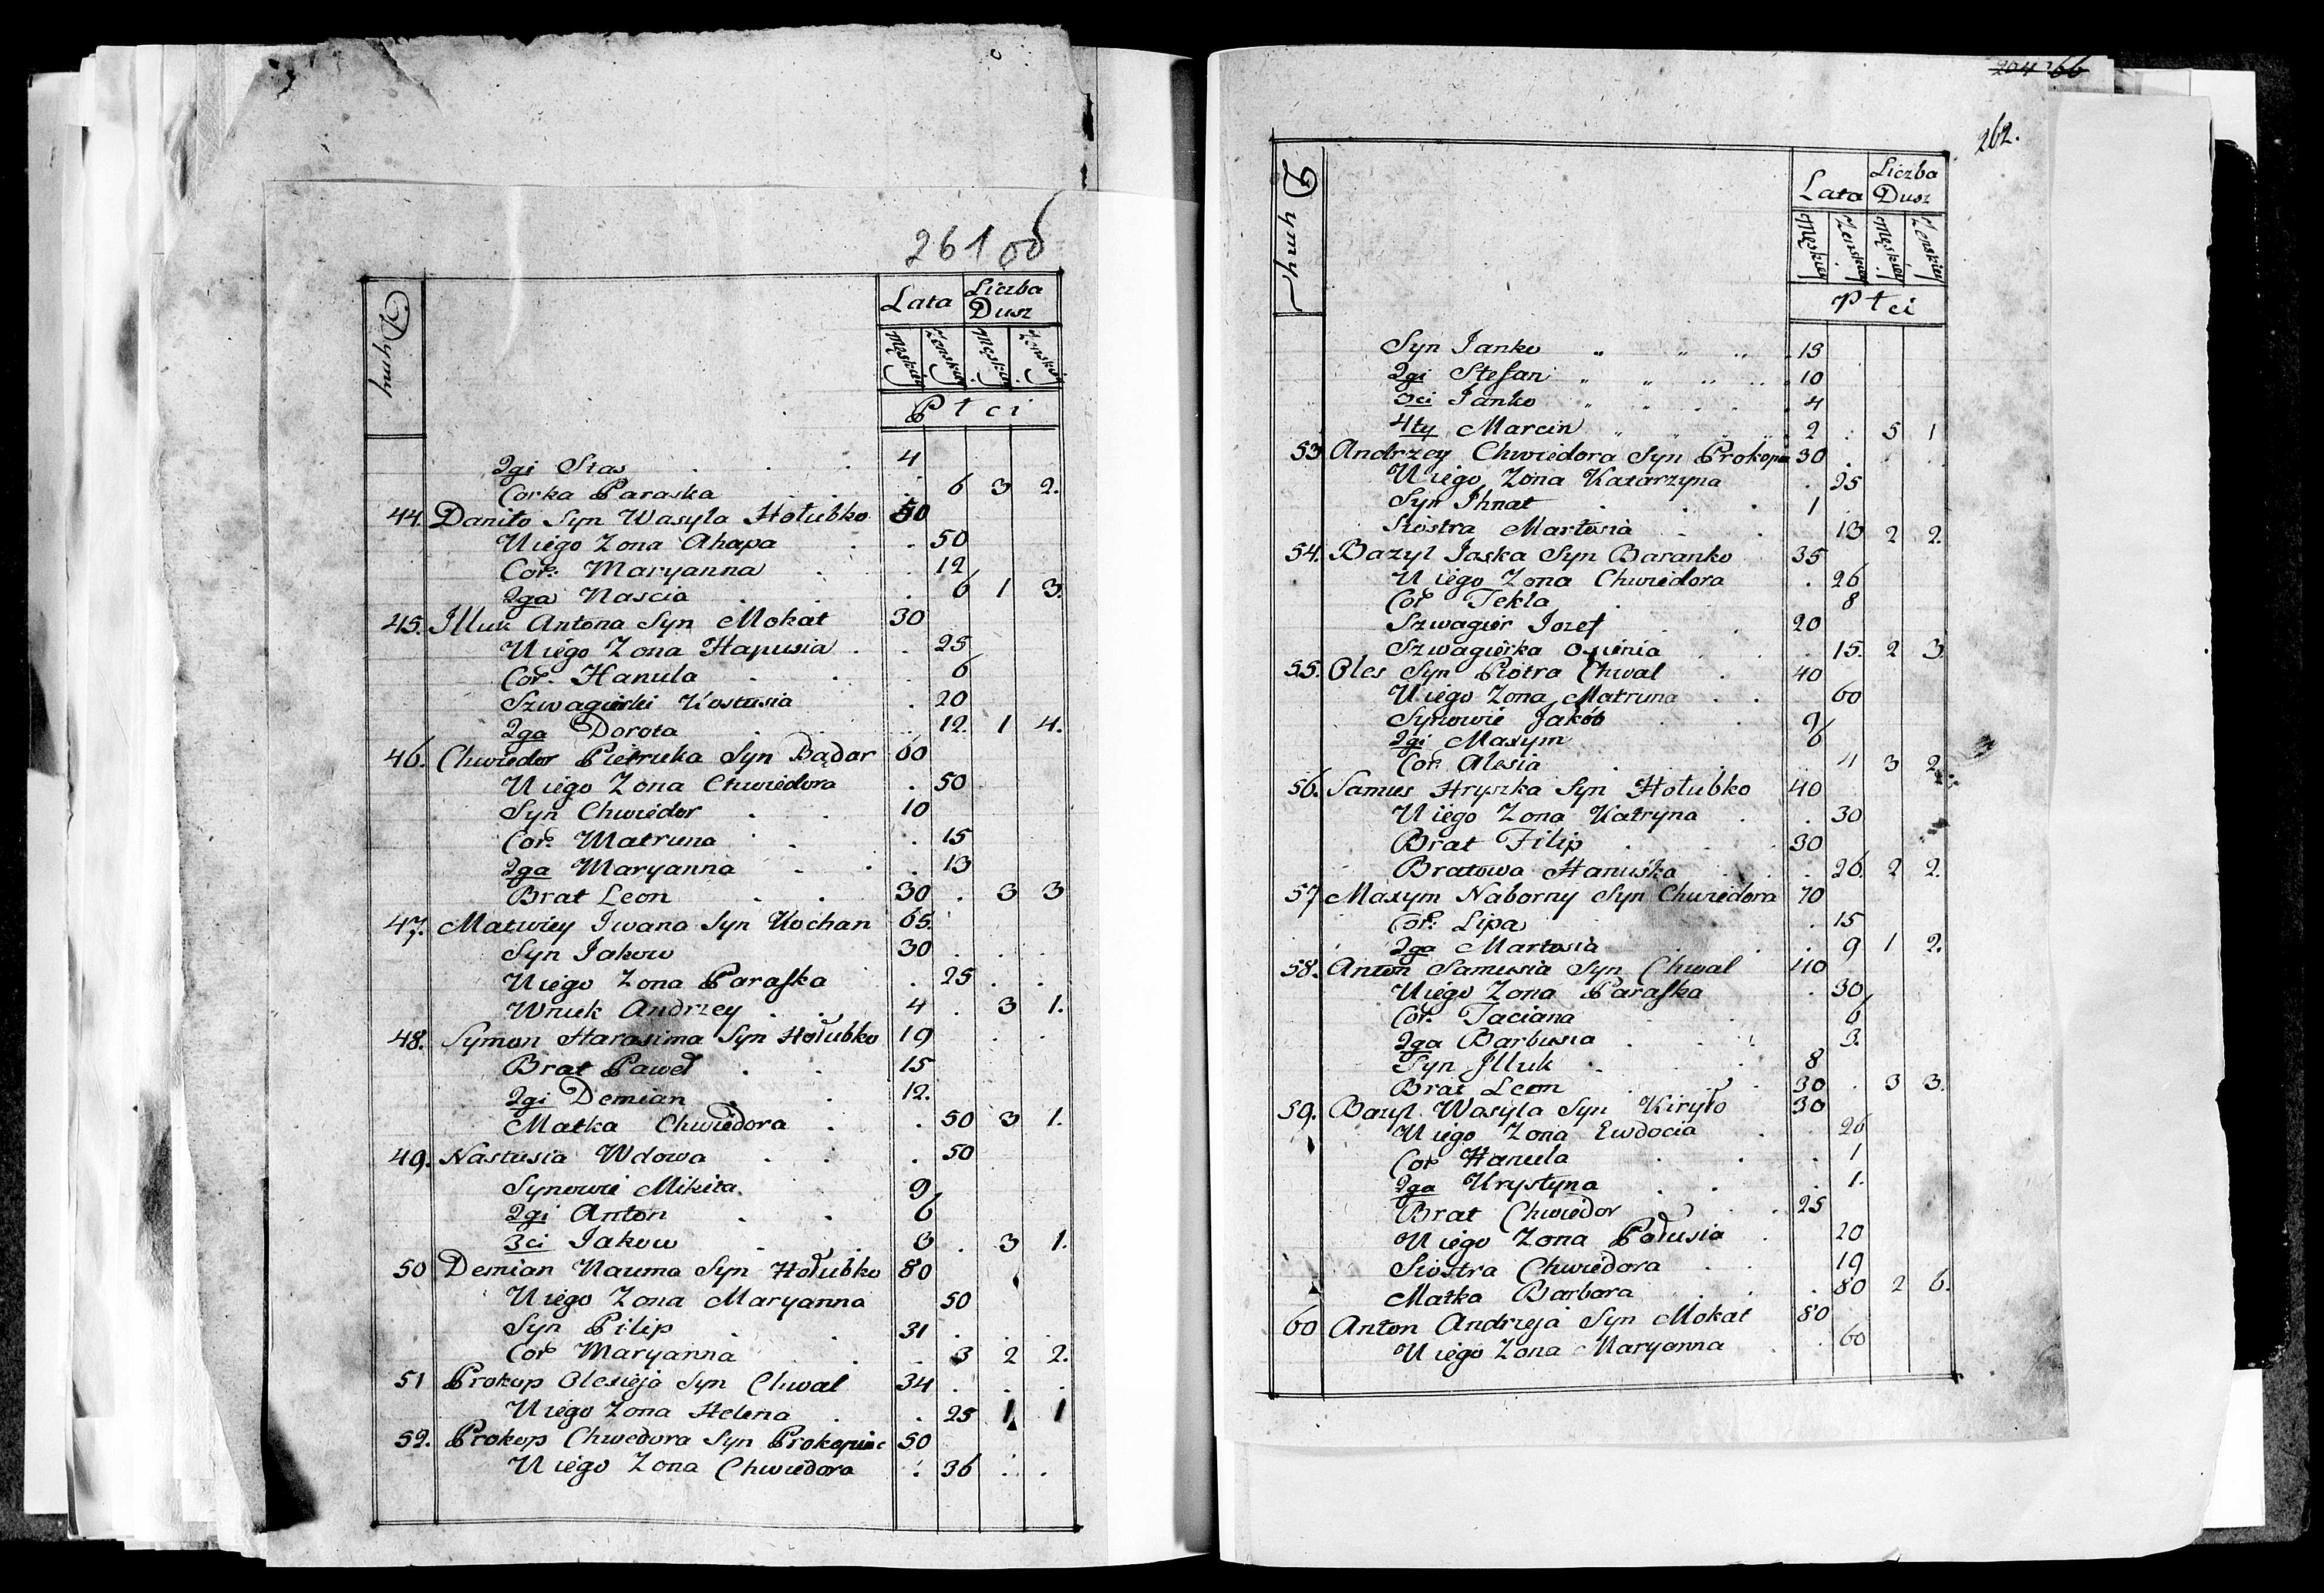 261 об
Dymy
Lata
Liczba Dusz
Męskiey Zenskiey Męskiey Zenskiey
Płci
2gi Stas 4
Corka Paraska 6 3 2.
44. Daniło Syn Wasyla Hołubko 50
U iego Zona Ahapa 50
Cor: Maryanna 12
2ga Nascia 6 1 3.
45. Illuk Antona Syn Mokat 30
U iego Zona Hapusia 25
Cor. Hanula 6
Szwagierki Kostusia 20
2ga Dorota 12. 1 4.
46. Chwiedor Pietruka Syn Bądar 60
U iego Zona Chwiedora 50
Syn Chwiedor 10
Cor: Matruna 15
2ga Maryanna 13
Brat Leon 30 3 3
47. Matwiey Iwana Syn Kochan 65.
Syn Jakow 30
U iego Zona Paraska 25
Wnuk Andrzey 4 3 1.
48. Symon Harasima Syn Hołubko 19
Brat Paweł 15
2gi Demian 12.
Matka Chwiedora 50 3 1.
49. Nastusia Wdowa 50
Synowie Mikita 9
2gi Anton 6
3ci Jakow 3 3 1.
50 Demian Nauma Syn Hołubko 80
U iego Zona Maryanna 50
Syn Pilip 31
Cor Maryanna 3 2 2.
51 Prokop Olesieja Syn Chwal 34
U iego Zona Helena 25 1 1
52. Prokop Chwedora Syn Prokopiuc 50
U iego Zona Chwiedora 36
262.
Dymy
Lata
Liczba Dusz
Męskiey Zenskiey Męskiey Zenskiey
Płci
Syn Janko 13
2gi Stefan 10
3ci Janko 4
4ty Marcin 2 5 1
53 Andrzey Chwiedora Syn Prokopiu 30
U iego Zona Katarzyna 25
Syn Ihnat 1
Siostra Martosia 13 2 2.
54. Bazyl Jaska Syn Baranko 35
U iego Zona Chwiedora 26
Cor Tekla 8
Szwagier Jozef 20
Szwagierka 15. 2 3.
55. Oles Syn Piotra Chwal 40
U iego Zona Matruna 60
Synowie Jakób 9
2gi Maxym 6
Cor. Alesia 4 3 2.
56. Samus Hryszka Syn Hołubko 40
U iego Zona Katryna 30
Brat Filip 30
Bratowa Hanuska 26. 2 2.
57 Maxym Naborny Syn Chwiedora 70
Cor. Lipa 15
2ga Martosia 9 1 2.
58. Anton Samusia Syn Chwal 40
U iego Zona Paraska 30
Cor. Taciana 6
2ga Barbusia 3.
Syn Illuk 8
Brat Leon 30 3 3.
59. Bazyl Wasyla Syn Kiryło 30
U iego Zona Ewdocia 26
Cor Hanula 1
2ga Krystyna 1.
Brat Chwiedor 25
U iego Zona Połusia 20
Siostra Chwiedora 19
Matka Barbara 80 2 6.
60 Anton Andrzeja Syn Mokat 80
U iego Zona Maryanna 60